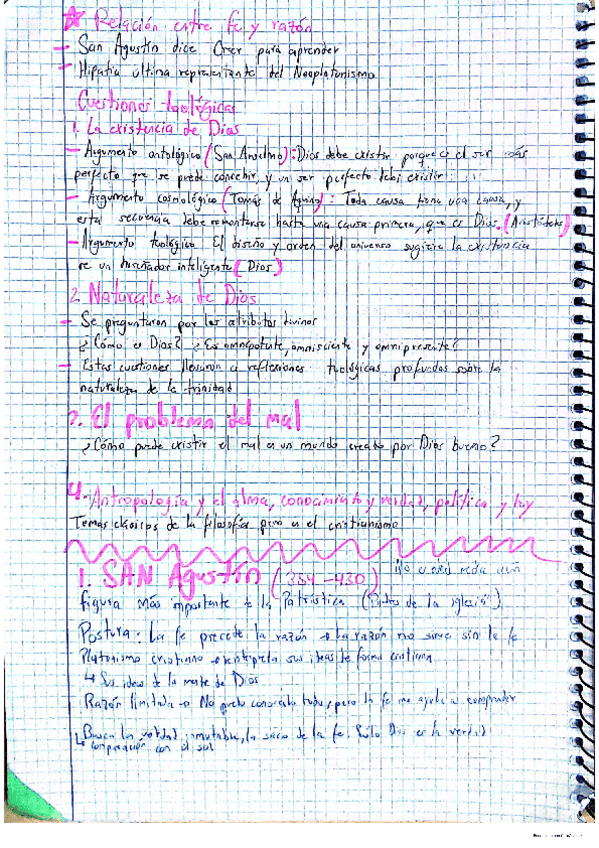 Relación entre fe y razón
- San Agustín dice Creer para aprender
- Hipatia última representante del Neoplatonismo
Cuestiones teológicas
1. La existencia de Dios
- Argumento ontológico (San Anselmo): Dios debe existir porque es el ser más
perfecto que se puede concebir, y un ser perfecto debe existir
- Argumento cosmológico (Tomás de Aquino): Toda causa tiene una causa, y
esta secuencia debe remontarse hasta una causa primera, que es Dios. (Aristóteles)
- Argumento teológico: El diseño y orden del universo sugiere la existencia
de un diseñador inteligente (Dios)
2. Naturaleza de Dios
- Se preguntaron por los atributos divinos
¿Cómo es Dios? ¿Es omnipotente, omnisciente y omnipresente?
- Estas cuestiones llevaron a reflexiones teológicas profundas sobre la
naturaleza de la trinidad
2. El problema del mal
¿Cómo puede existir el mal en un mundo creado por Dios bueno?
4. Antropología y el alma, conocimiento y verdad, política y ley
Temas clásicos de la filosofía pero en el cristianismo
1. SAN Agustín (354-430)
figura más importante de la Patrística (Padres de la iglesia)
Postura: La fe precede la razón → La razón no sirve sin la fe
Platonismo cristiano → reinterpreta sus ideas de forma cristiana
↳ Sus ideas de la mente de Dios
Razón limitada → No puedo conocerlo todo, pero la fe me ayuda a comprender
↳ Busca la verdad inmutable, la saca de la fe. Solo Dios es la verdad
comparación con el sol